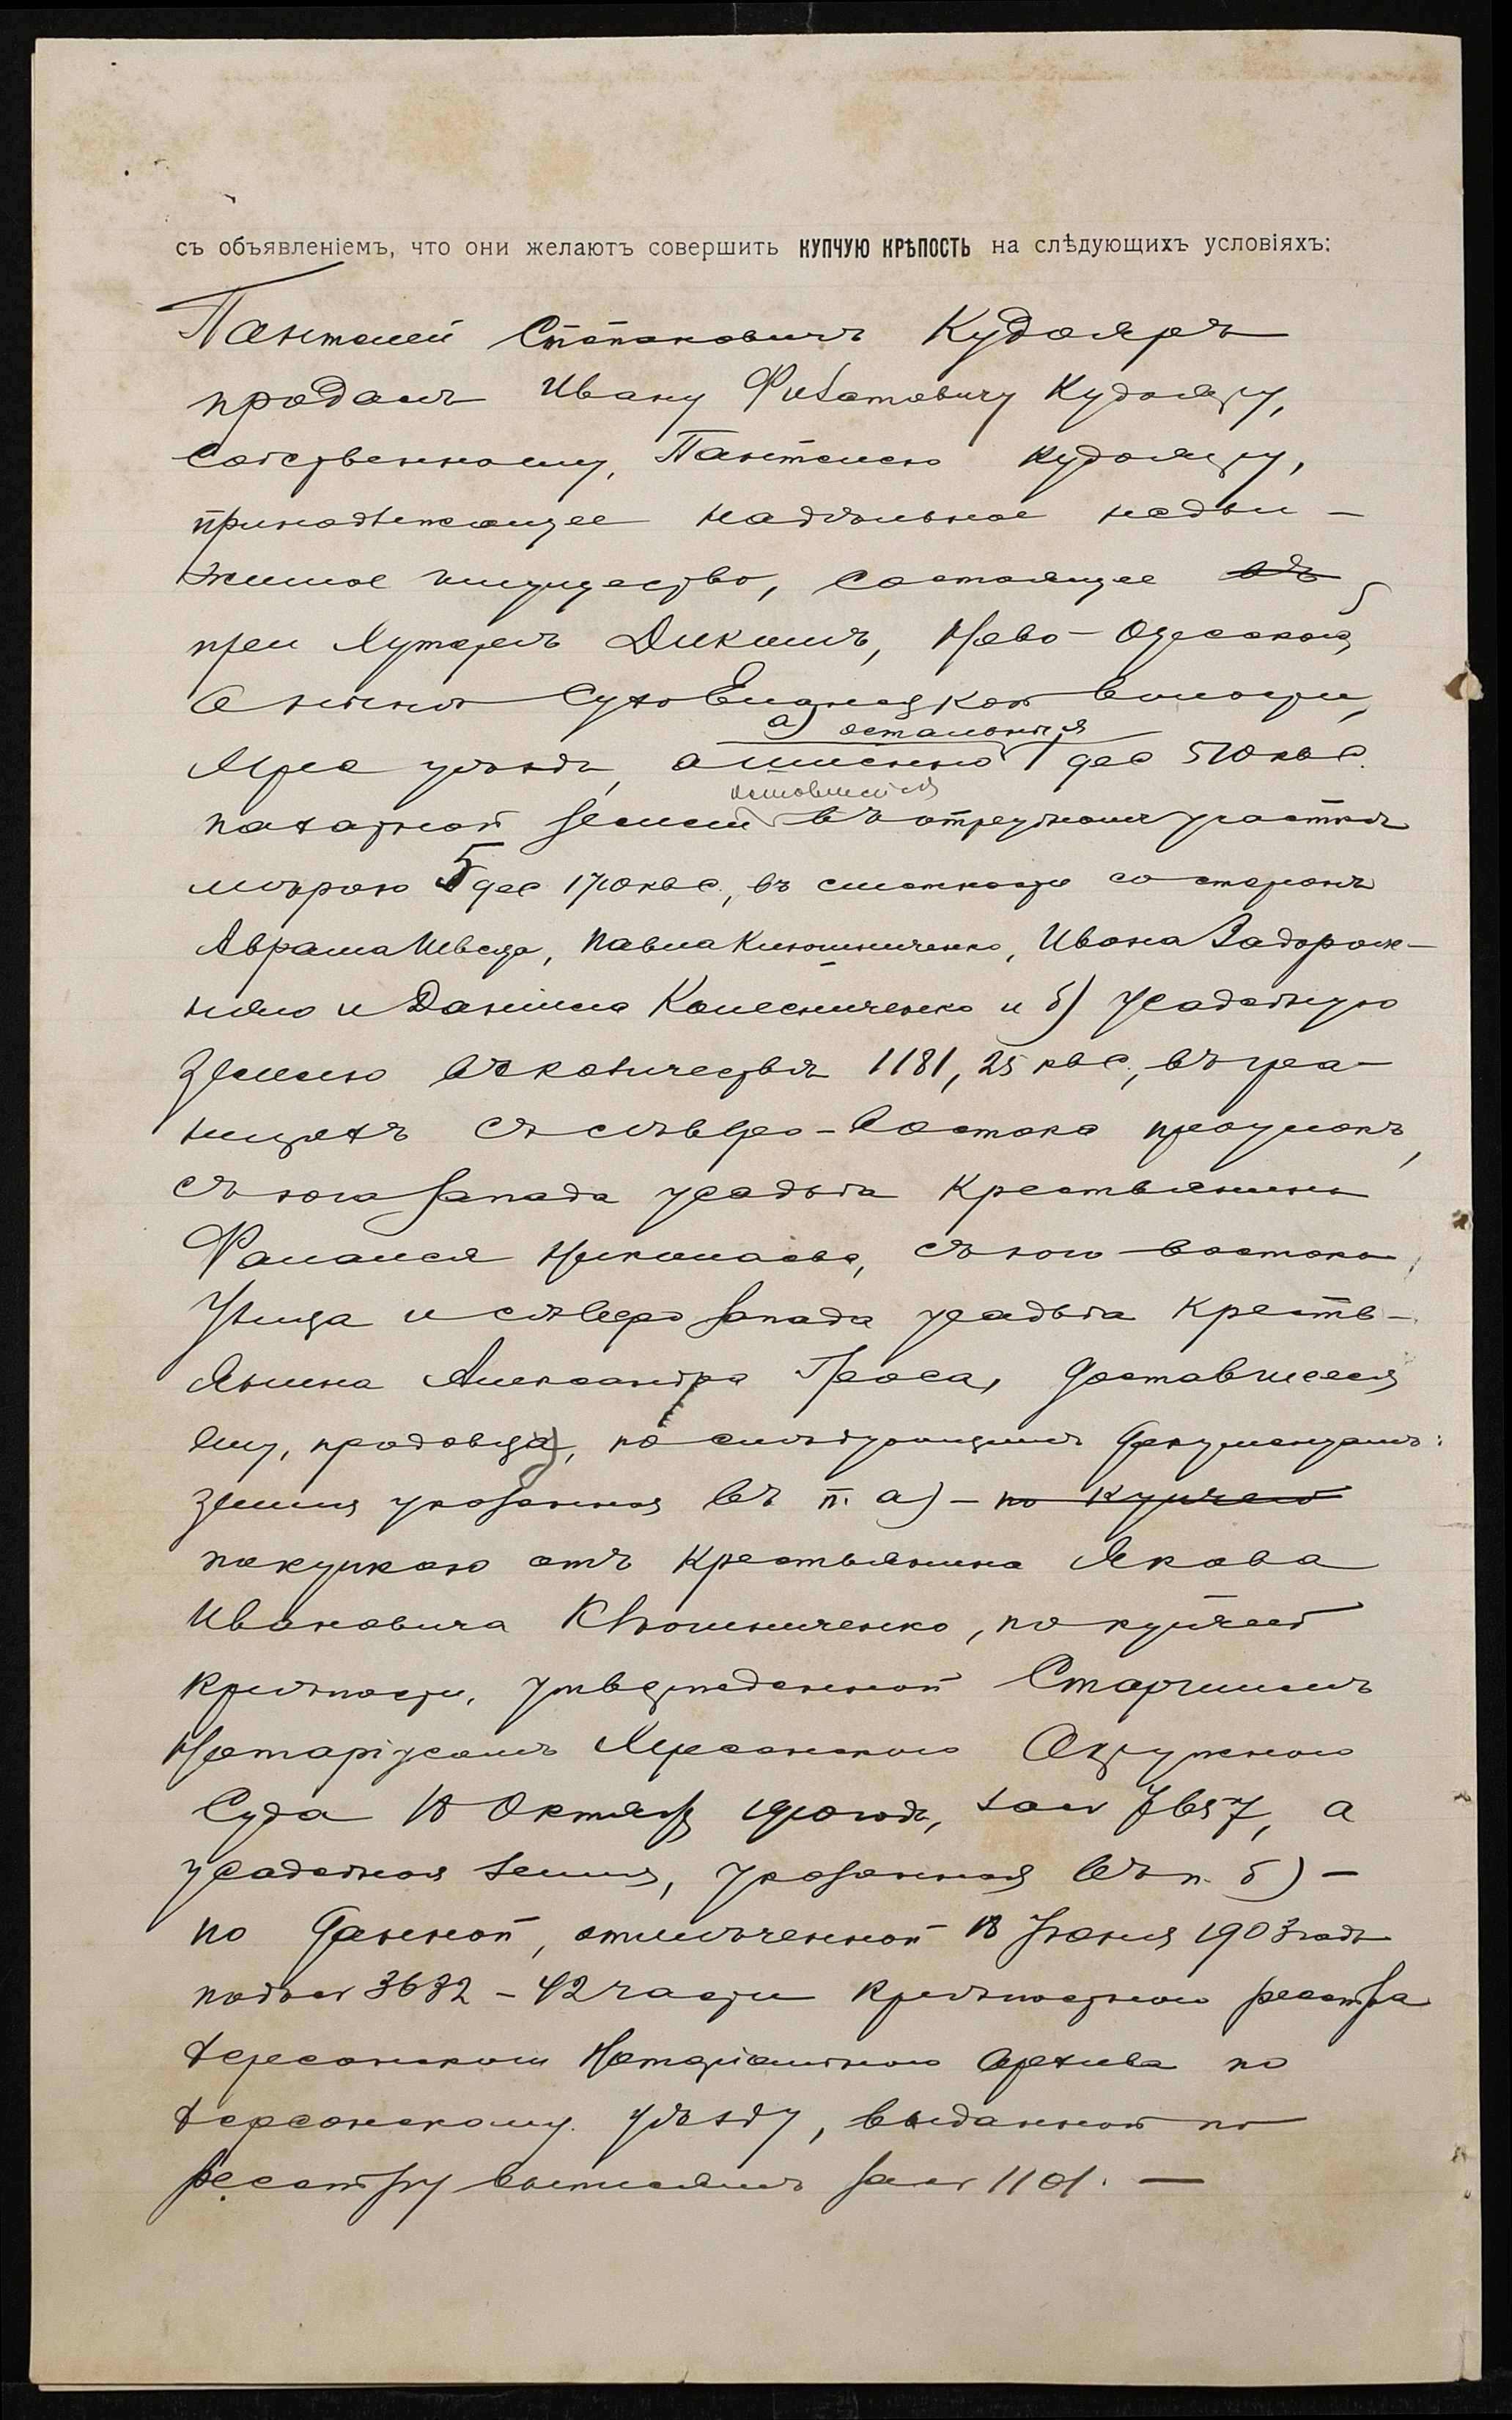 съ объявленіемъ, что они желаютъ совершить КУПЧУЮ КРѢПОСТЬ на слѣдующихъ условіяхъ:
Пантелей Степановичъ Кудояръ
продалъ Ивану Филатовичу Кудояру,
собственному, Пантелею Кудояру,
принадлежащее надѣльное недви-
жимое имущество, состоящее въ
при хуторѣ Дикомъ, Ново-Одесской,
Сухо Еланецкой волости,
Херс уѣзда, а именно 1 дес 510 кв с.
а) остальныя
пахатной земли въ отрубномъ участкѣ
мѣрою 5 дес 170 кв с., въ смежности со стороны
Аврама Шведа, Павла Клюшниченко, Ивана Задорож-
няго и Даніила Колесниченко и б) усадебную
землю въ количествѣ 1181,25 кв с., въ гра-
ницахъ съ сѣверо-востока проулокъ,
съ юга запада усадьба крестьянина
Николаева, съ юго-востока
улица и сѣверо запада усадьба кресть-
янина Александра Гроса, доставшееся
ему, продавцу, по слѣдующимъ документамъ:
земля указанная въ п. а) - по купчей
покупкою отъ крестьянина Якова
Ивановича Клюшниченко, по купчей
крѣпости, утвержденной Старшимъ
Нотаріусомъ Херсонскаго Окружного
Суда 18 Октября 1910 года, за № 7657, а
усадебная земля, указанная въ п. б) -
по данной, отмѣченной 18 Іюня 1903 года
подъ № 3632 - 42 части крѣпостного реестра
Херсонскаго Нотаріальнаго Архива по
Херсонскому уѣзду, выданной по
реестру выписямъ за № 1101. -